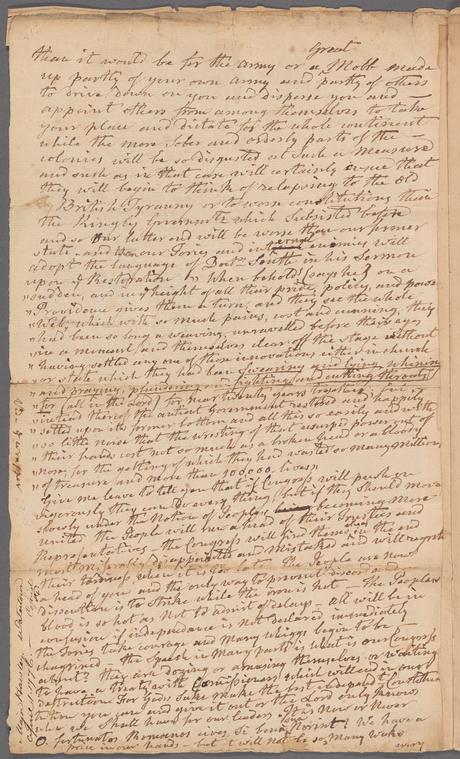 Great
than it would be for the Army or a Mobb made
up partly of your own Army and partly of others
to drive down on you and disperse you and
appoint others from among themselves to take
your place and Dictate for the whole continent
while the more sober and orderly parts of the
colonies will be so disgusted at such a Measure
and such as in that case will certainly ensue that
they will begin to think of relapsing to the old
British Tyranny or to worse constitutions than
the Kingly Governments which subsisted before
and so our latter end will be worse than our former
state - and our Tories and internal enemies will
adopt the language of Doctr South in his Sermon
upon ye Restoration " When behold! (says he) on a
"sudden, and in ye height of all their pride, policy, and power
"Providence gives them a turn, and they see the whole
"Web, which with so much pains, cost and cunning, they
"had been so long a weaving, unravelled before their eyes
"in a moment, and themselves clear off the stage without
"having settled any one of those innovations either in church
"or state which they had been swearing and lying, whining
"and praying, plundering and fighting, and cutting throats
"for (all in the Lord) for near twenty years together; but
"instead thereof the antient Government restored and happily
"settled upon its former bottom and all this so easily and with
"so little noise that the wresting of that usurped power out of
"their hands cost not so much as a broken head or a bloody
"nose; for the getting of which they had wasted so many millions
"of treasure and more than 100,000. lives"
Give me leave to tell you that if Congress will push on
Vigorously they can do every thing, but if they should move
slowly under the Notion of Peoples becoming more
united the People will run a head of their Trustees and
Representatives - the Congress will find themselves in the end
most miserably disappointed and Mistaked and will regrett
their tardiness when it is too late The People are now
a head of you and the only way to prevent discord and
dissention is to strike while the iron is hot - The Peoples
blood is so hot as not to admit of delays - all will be in
confusion if independence is not declared immediately
the Tories take courage and Many Whiggs begin to be
chagrined - the speech in Many parts is what is our Congress
about? they are dozing or amusing themselves or waiting
to have a treaty with Commissioners which will end in our
destruction For Gods sake make the
tire you and give it out or the Lord only knows
who we shall have for our leaders This Now or Never
O fortunatos Romanos cives, si bona norint! We have a
price in our hands - but it will not be so, Many weeks